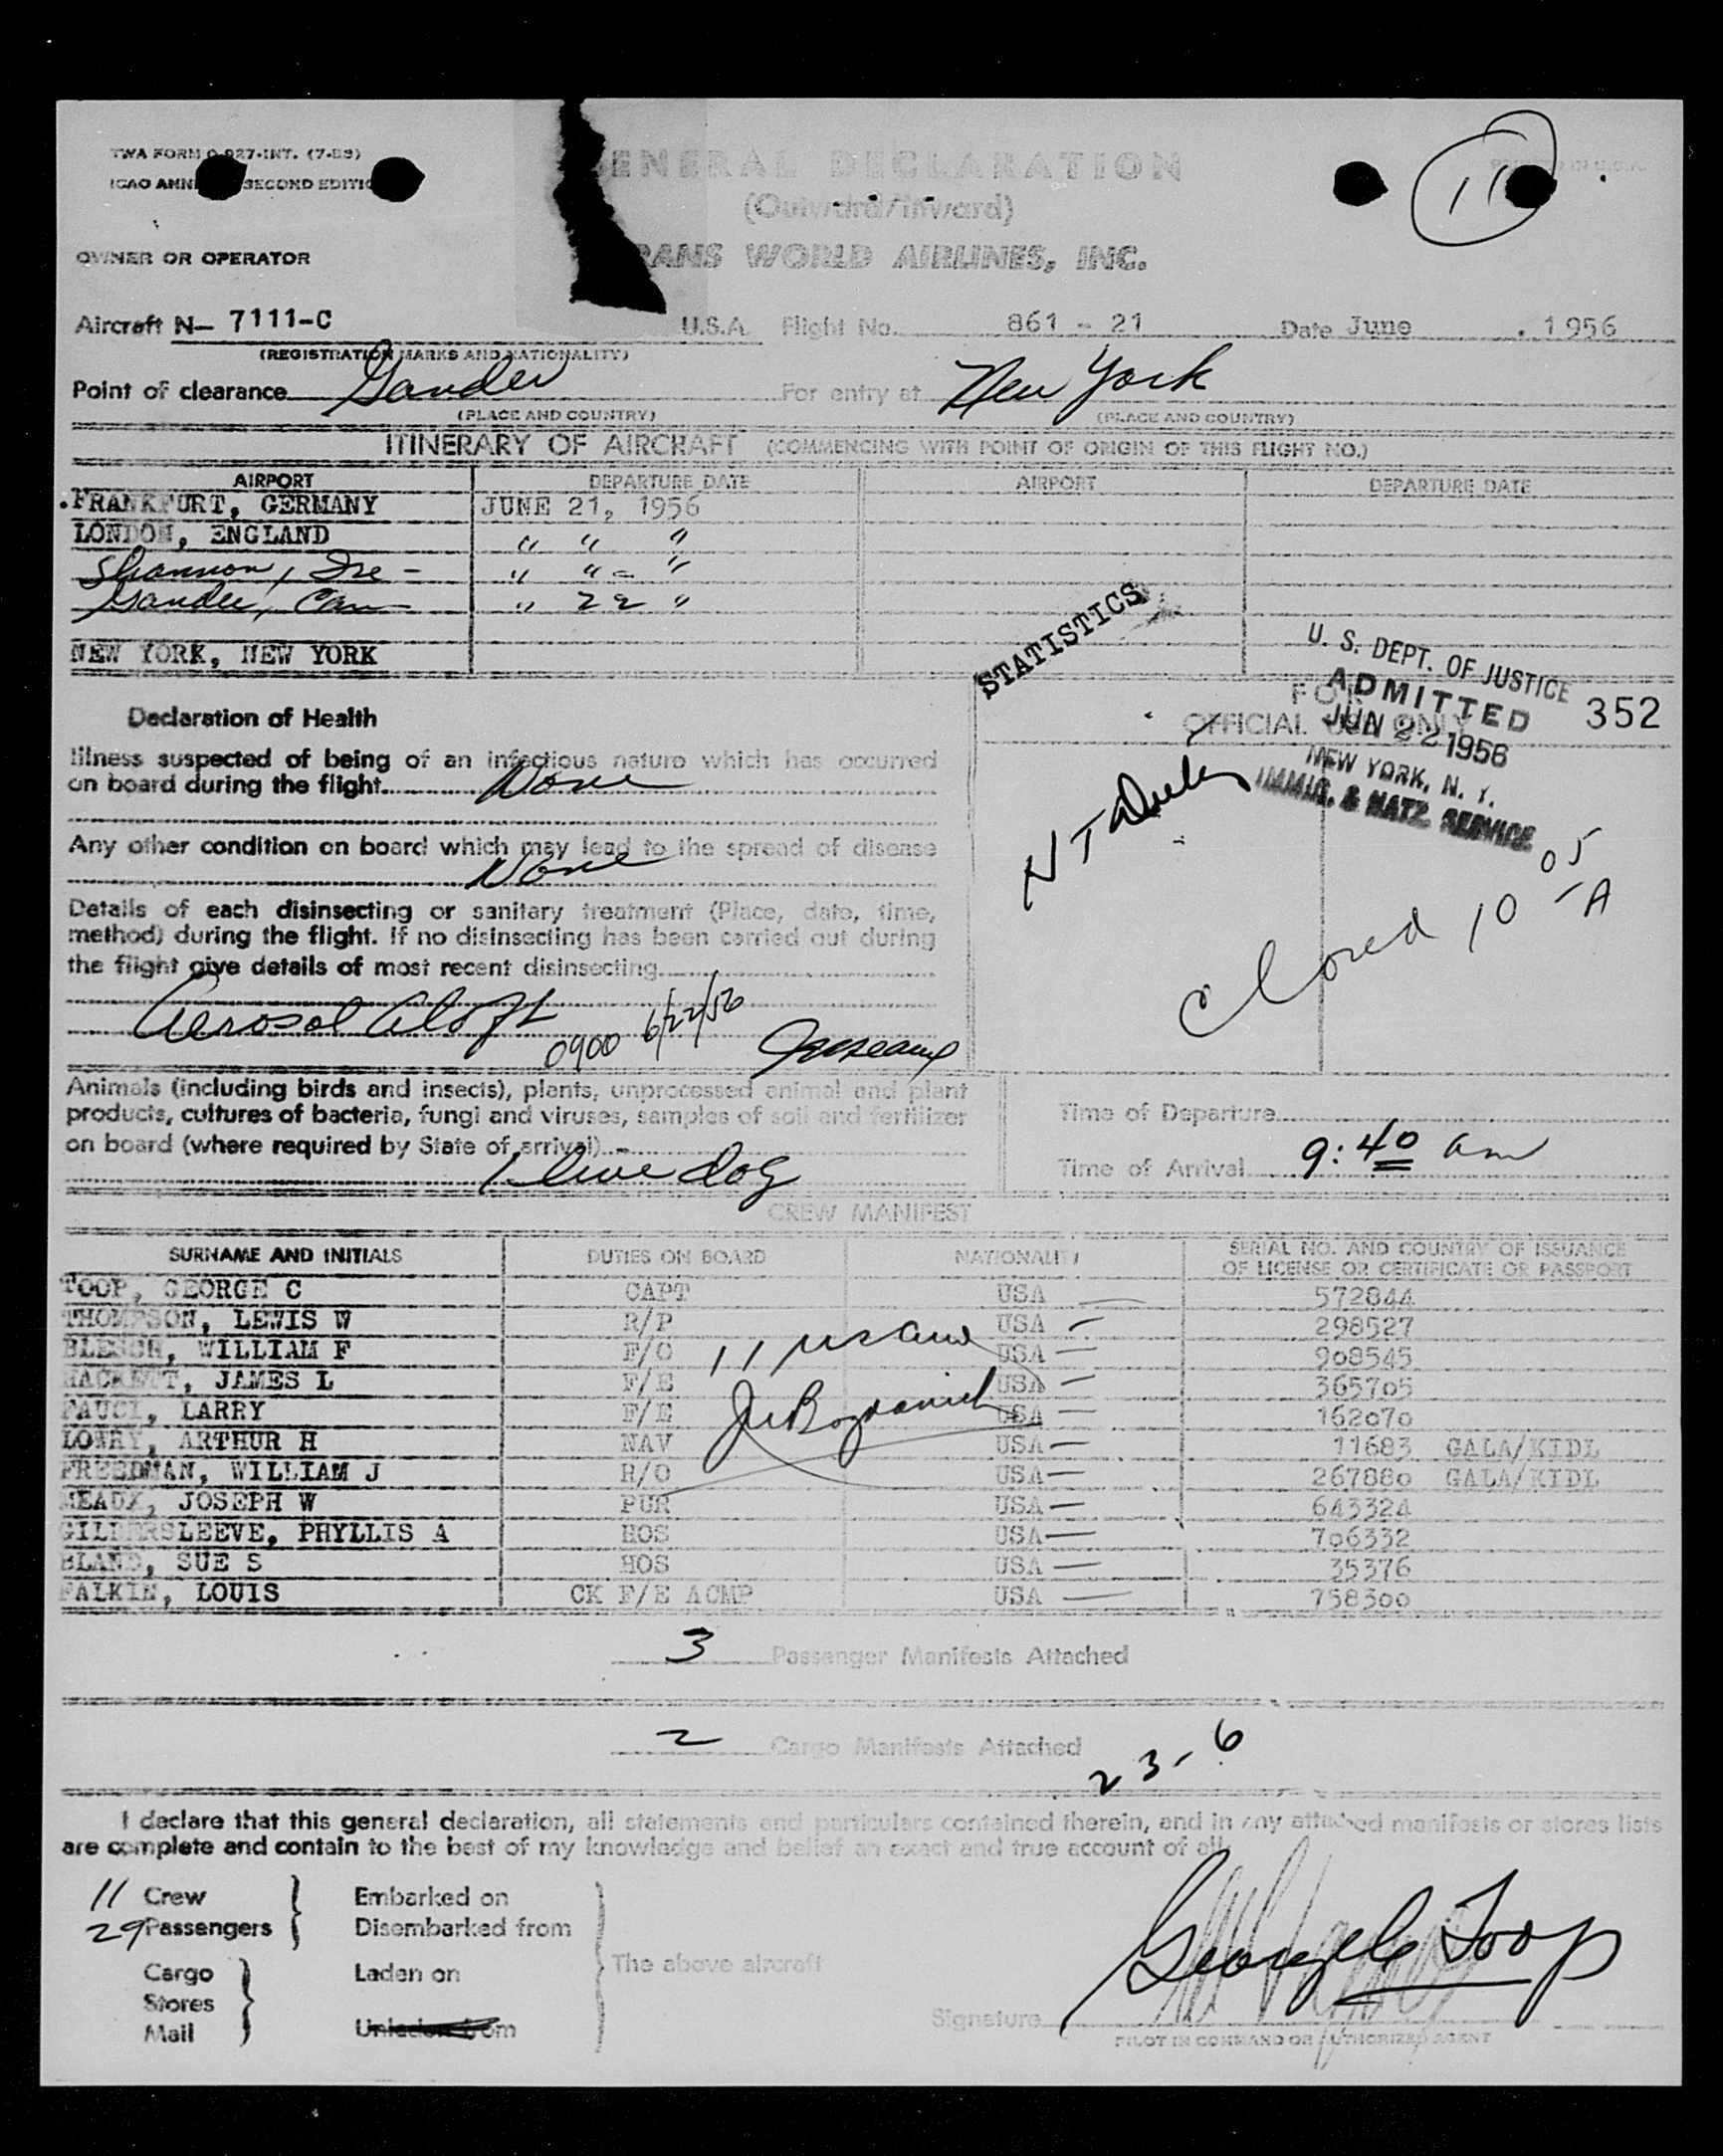 TWA FORM O-027-INT. (7-53)
ICAO ANN SECOND EDITIO
ENERAL DECLARATION
(Outward/Inward)
11
OWNER OR OPERATOR
RANS WORLD AIRLINES, INC.
Aircraft N— 7111-C U.S.A. Flight No. 861 - 21 Date June , 1956
(REGISTRATION MARKS AND NATIONALITY)
Point of clearance Gander For entry at New York
(PLACE AND COUNTRY) (PLACE AND COUNTRY)
ITINERARY OF AIRCRAFT (COMMENCING WITH POINT OF ORIGIN OF THIS FLIGHT NO.)
AIRPORT DEPARTURE DATE AIRPORT DEPARTURE DATE
FRANKFURT, GERMANY JUNE 21, 1956
LONDON, ENGLAND " " "
Shannon, Ire - " " "
Gander, Can " 22 "
NEW YORK, NEW YORK
STATISTICS
U. S. DEPT. OF JUSTICE
ADMITTED
JUN 22 1956
NEW YORK, N. Y.
IMMIG. & NATZ. SERVICE
352
FOR
OFFICIAL USE ONLY
Closed 10 05 - A
Declaration of Health
Illness suspected of being of an infectious nature which has occurred
on board during the flight None
Any other condition on board which may lead to the spread of disease
None
Details of each disinsecting or sanitary treatment (Place, date, time,
method) during the flight. If no disinsecting has been carried out during
the flight give details of most recent disinsecting
Aerosol Aloft 0900 6/22/56
Animals (including birds and insects), plants, unprocessed animal and plant
products, cultures of bacteria, fungi and viruses, samples of soil and fertilizer
on board (where required by State of arrival)
1 live dog
Time of Departure
Time of Arrival 9:40 am
CREW MANIFEST
SURNAME AND INITIALS DUTIES ON BOARD NATIONALITY SERIAL NO. AND COUNTRY OF ISSUANCE
OF LICENSE OR CERTIFICATE OR PASSPORT
TOOP, GEORGE C CAPT USA 572844
THOMPSON, LEWIS W R/P USA 298527
BLESCH, WILLIAM F F/O USA 908545
HACKETT, JAMES L F/E USA 365705
FAUCI, LARRY F/E USA 162070
LOWRY, ARTHUR H NAV USA 11683 GALA/KIDL
FREEDMAN, WILLIAM J R/O USA 267880 GALA/KIDL
MEADX, JOSEPH W PUR USA 643324
GILDERSLEEVE, PHYLLIS A HOS USA 706332
BLAND, SUE S HOS USA 35376
FALKIN, LOUIS CK F/E ACMP USA 758300
3 Passenger Manifests Attached
2 Cargo Manifests Attached
23-6
I declare that this general declaration, all statements and particulars contained therein, and in any attached manifests or stores lists
are complete and contain to the best of my knowledge and belief an exact and true account of all
11 Crew Embarked on
29 Passengers Disembarked from
The above aircraft
Cargo Laden on
Stores
Mail Unladen from
Signature George C Toop
PILOT IN COMMAND OR AUTHORIZED AGENT